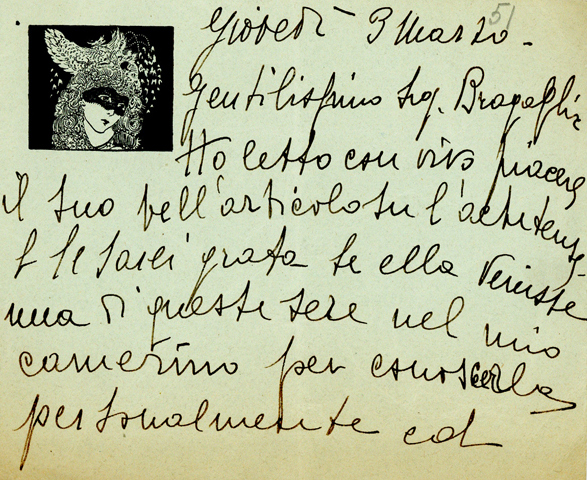 51
Giovedì 3 Marzo -
Gentilissimo Sig. Bragaglia
Ho letto con vivo piacere
il suo bell'articolo su l'
e le sarei grata se ella venisse
una di queste sere nel mio
camerino per conoscerla
personalmente ed